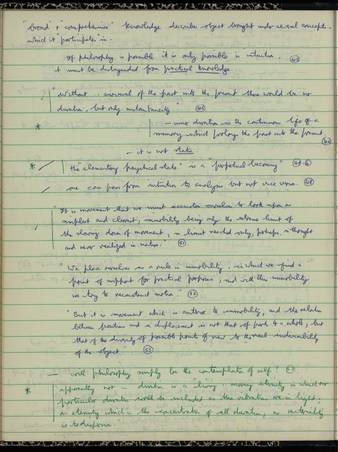 "broad & comprehensive" knowledge describes object brought under several concepts,
which it "participates" in.
If philosophy is possible it is only possible in intuition.
it must be distinguished from practical knowledge
"Without a survival of the past into the present there would be no
duration, but only instantaneity"
inner duration is the continuous life of a
memory which prolongs the past into the present
it is not static
the elementary psychical state is a "perpetual becoming"
one can pass from intuition to analysis but not vice versa
"It is movement that we must accustom ourselves to look upon as
simplest and clearest, immobility being only the extreme limit of
the slowing down of movement, a limit reached only, perhaps, in thought
and never realized in nature."
"We place ourselves as a rule in immobility, in which we find a
point of support for practical purposes, and with this immobility
we try to reconstruct motion"
"But it is movement which is anterior to immobility, and the relation
between positions and a displacement is not that of parts to a whole, but
that of the diversity of possible points of view to the real indivisibility
of the object
will philosophy simply be the contemplation of self?
apparently not - duration is a living & moving eternity in which our
particular duration would be included as the vibrations are in light;
an eternity which is the concentration of all duration, as materiality
is its dispersion